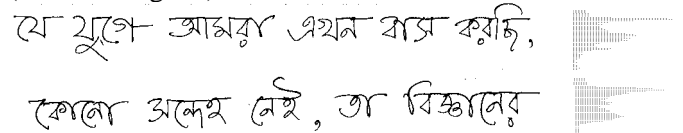 যে যুগে আমরা এখন বাস করছি,
কোনো সন্দেহ নেই, তা বিজ্ঞানের